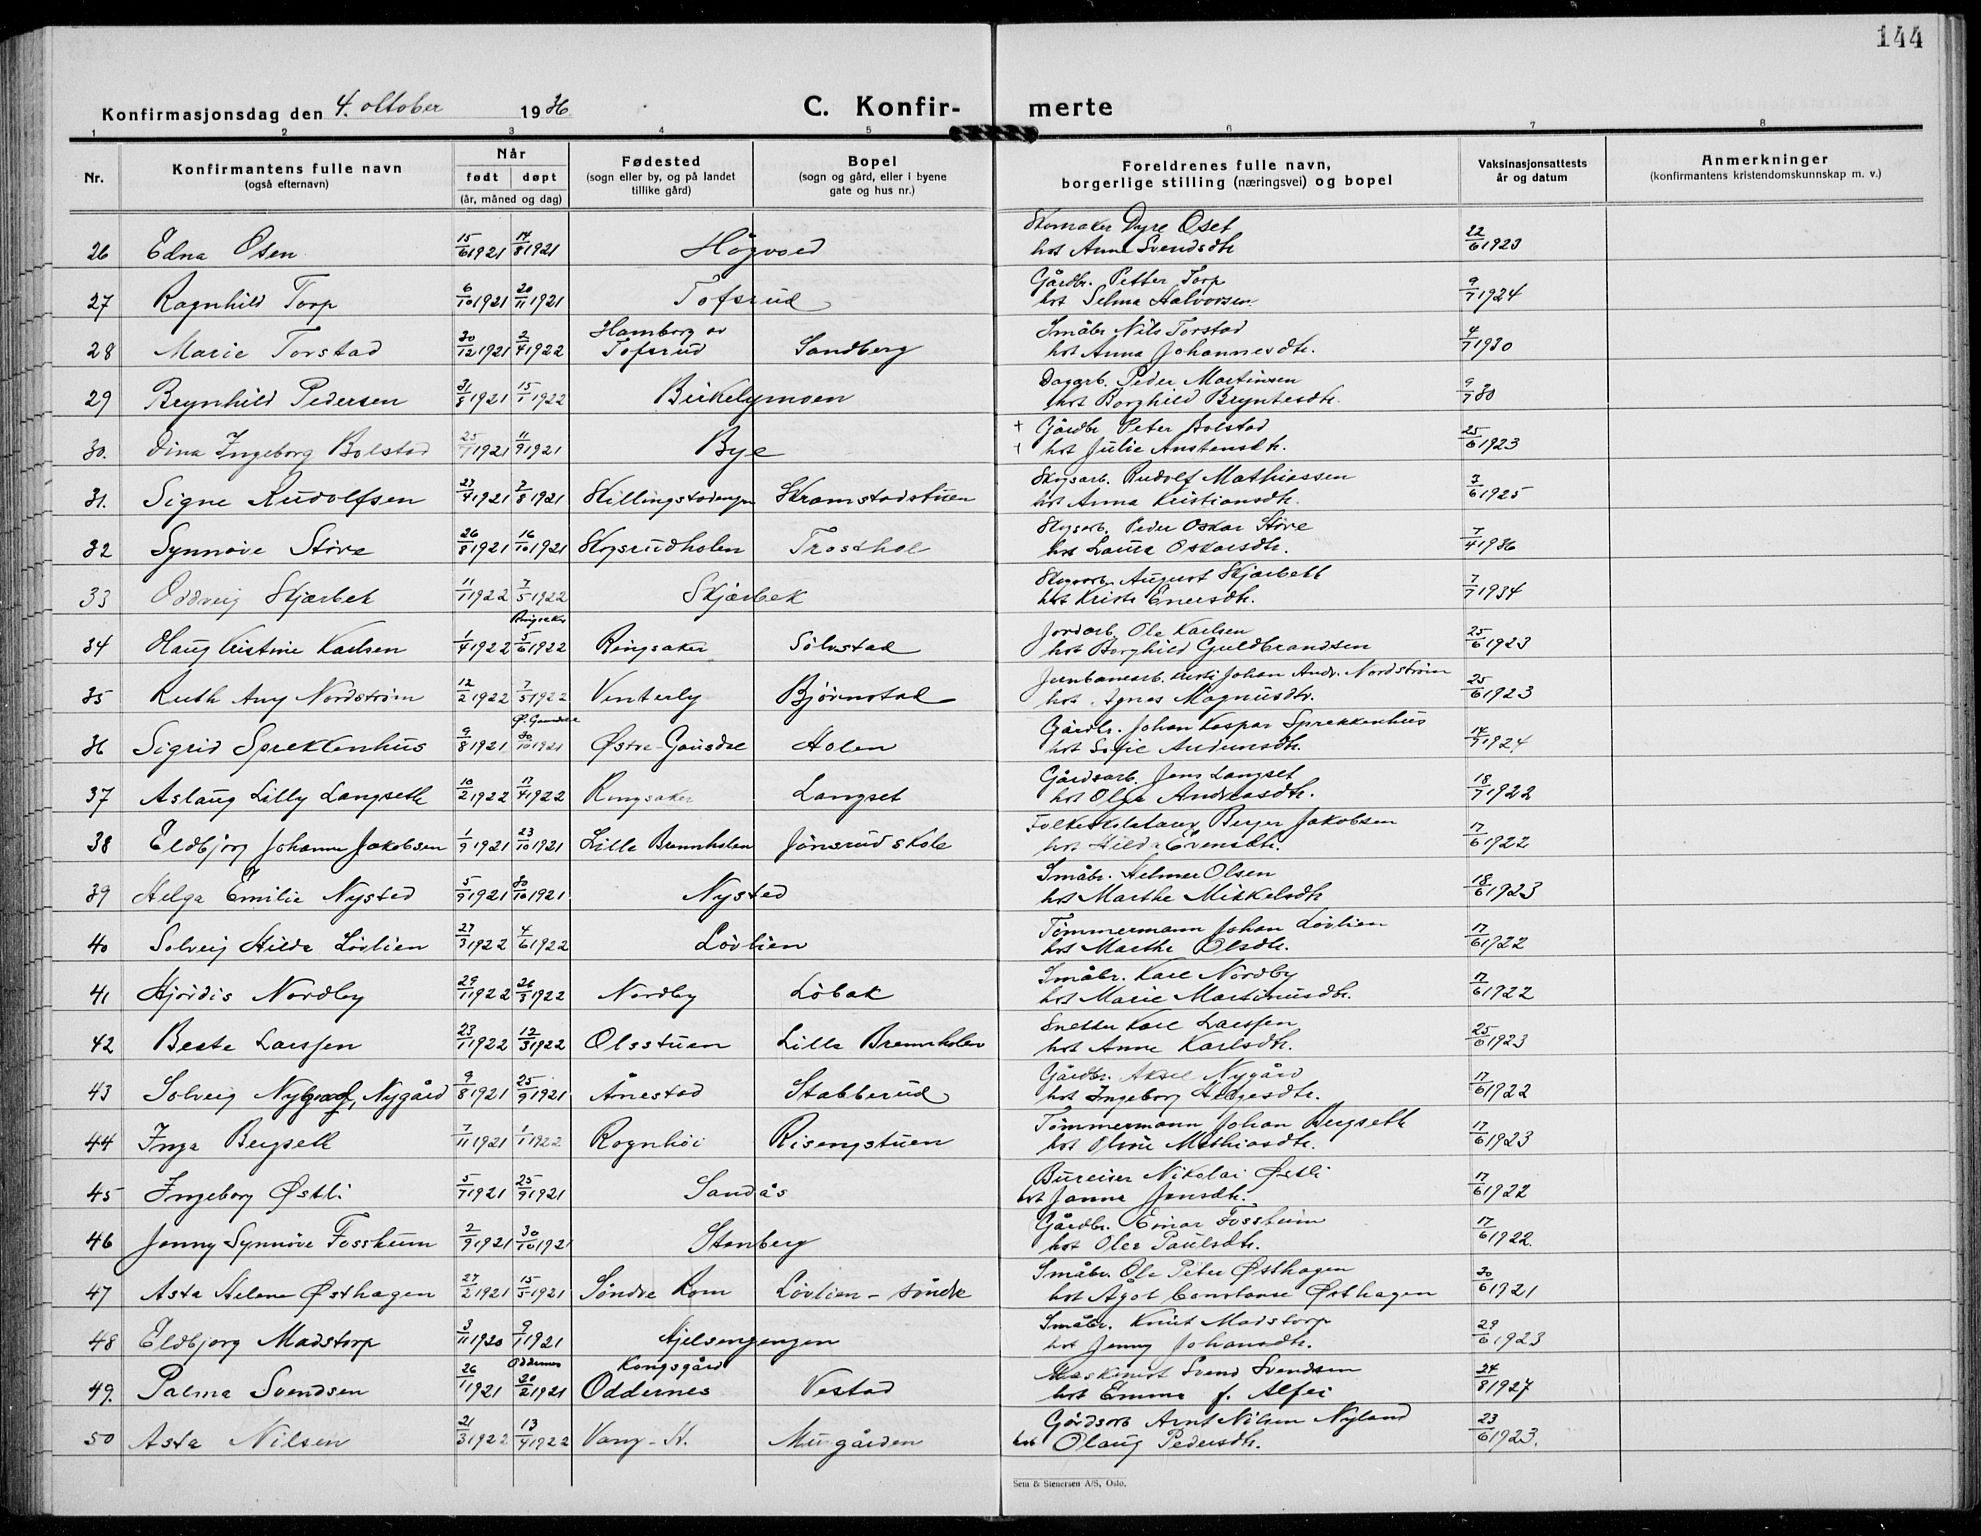 144
Konfirmasjonsdag den 4. oktober 1936 C. Konfir- merte
1 2 3 4 5 6 7 8
Nr. Konfirmantens fulle navn (også efternavn) Når født døpt (år, måned og dag) Fødested (sogn eller by, og på landet tillike gård) Bopel (sogn og gård, eller i byene gate og hus nr.) Foreldrenes fulle navn, borgerlige stilling (næringsvei) og bopel Vaksinasjonsattests år og datum Anmerkninger (konfirmantens kristendomskunnskap m. v.)
26 Edna Osen 15/6 1921 14/8 1921 Skomaker Dyre Oset
hst Anne Svendsdtr. 22/6 1923
27 Ragnhild Torp 6/10 1921 20/11 1921 Tofsrud Gårdbr. Petter Torp
hst Selma Halvorsen 9/7 1924
28 Marie Torstad 30/12 1921 2/4 1922 Hamborg av Tofsrud Sandberg Småbr. Nils Torstad
hst Anna Johannesdtr. 4/7 1930
29 Brynhild Pedersen 31/8 1921 15/1 1922 Birkelymoen Dagarb. Peder Martinsen
hst Borghild Bryntesdtr. 9/7 30
30. Dina Ingeborg Bolstad 25/7 1921 11/9 1921 Bye + Gårdbr Peter Bolstad
+ hst Julie Austensdtr. 25/6 1923
31. Signe Rudolfsen 27/4 1921 7/8 1921 Skillingstadengen Skramstadstuen Skogsarb. Rudolf Mathiassen
hst Anna Kristiansdtr. 3/6 1925
32 Synnøve Støre 26/8 1921 16/10 1921 Skogsrudholen Trosthol Skogsarb. Peder Oskar Støre
hst Laura Oskarsdtr. 7/4 1936
33 Oddveig Skjærbek 11/1 1922 7/5 1922 Skjærbek Skogsarb. August Skjærbekk
hst Kristi Enersdtr. 7/7 1934
34 Haug Kristine Karlsen 1/4 1922 Ringsaker 5/6 1922 Ringsaker Sølvstad Jordarb. Ole Karlsen
hst Borghild Guldbrandsen 25/6 1923
35 Ruth Any Nordstrøm 12/2 1922 7/5 1922 Vinterly Bjørnstad Jernbanearb. Johan Andr. Nordstrøm
hst. Agnes Magnusdtr. 25/6 1923
36 Sigrid Sprekkenhus 9/8 1921 Ø. Gausdal 30/10 1921 Østre-Gausdal Holen Gårdbr. Johan Kaspar Sprekkenhus
hst Sofie Andersdtr. 14/7 1924
37 Aslaug Lilly Langseth 10/2 1922 17/4 1922 Ringsaker Langset Gårdsarb. Jens Langset
hst Olga Andreasdtr. 18/7 1922
38 Eldbjørg Johanne Jakobsen 1/9 1921 23/10 1921 Lille Brennholen Jønsrud skole Folkeskolelærer Berger Jakobsen
hst Hilda Evensdtr. 17/6 1922
39 Helga Emilie Nysted 5/9 1921 30/10 1921 Nysted Småbr. Helmer Olsen
hst Marthe Mikkelsdtr 18/6 1923
40 Solveig Hilda Løvlien 27/3 1922 4/6 1922 Løvlien Tømmermann Johan Løvlien
hst Marthe Olsdtr. 17/6 1922
41 Hjørdis Nordby 29/1 1922 26/3 1922 Nordby Løbak Småbr. Karl Nordby
hst Marie Martinusdtr. 17/6 1922
42 Beate Larssen 23/1 1922 12/3 1922 Olsstuen Lille Brennholen Snekker Karl Larssen
hst Anne Karlsdtr. 25/6 1923
43 Solveig Nygård 9/8 1921 25/9 1921 Ånestad Stabberud Gårdbr. Aksel Nygård
hst Ingeborg Helgesdtr. 17/6 1922
44 Inga Bergseth 7/11 1921 1/1 1922 Rognhøi Risengstuen Tømmermann Johan Bergseth
hst Oline Mathiasdtr. 17/6 1923
45 Ingeborg Østli 5/7 1921 25/9 1921 Sandås Bureiser Nikolai Østli
hst Janna Jensdtr. 17/6 1922
46 Jenny Synnøve Fosshum 2/9 1921 30/10 1921 Stenberg Gårdbr. Einar Fosshum
hst Oler Paulsdtr. 17/6 1922.
47 Asta Helene Østhagen 27/2 1921 15/5 1921 Søndre Rom Løvlien - søndre Småbr. Ole Peter Østhagen
hst Ågot Constanse Østhagen 30/6 1921
48 Eldbjørg Madstorp 3/11 1920 9/1 1921 Hjelsengengen Småbr. Knut Madstorp
hst Jenny Johansdtr. 29/6 1923
49. Palma Svendsen 26/1 1921 Oddernes 20/2 1921 Kongsgård Oddernes Vestad Maskinist Svend Svendsen
hst Emma f. Alfei 24/8 1927
50 Asta Nilsen 21/3 1922 13/4 1922 Vang - H. Murgården Gårdsarb Arnt Nilsen Nyland
hst Olaug Pedersdtr. 23/6 1923.
Sem & Stenersen A/S, Oslo.